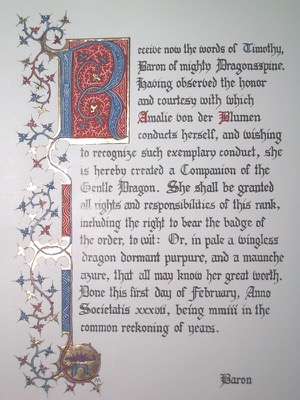 Receive now the words of Timothy,
Baron of mighty Dragonsspine.
Having observed the honor
and courtesy with which
Amalie von der Blumen
conducts herself, and wishing
to recognize such exemplary conduct, she
is hereby created a Companion of the
Gentle Dragon. She shall be granted
all rights and responsibilities of this rank,
including the right to bear the badge of
the order, to wit: Or, in pale a wingless
dragon dormant purpure, and a maunche
azure, that all may know her great worth.
Done this first day of February, Anno
Societatis xxxvii, being mmiii in the
common reckoning of years.
Baron